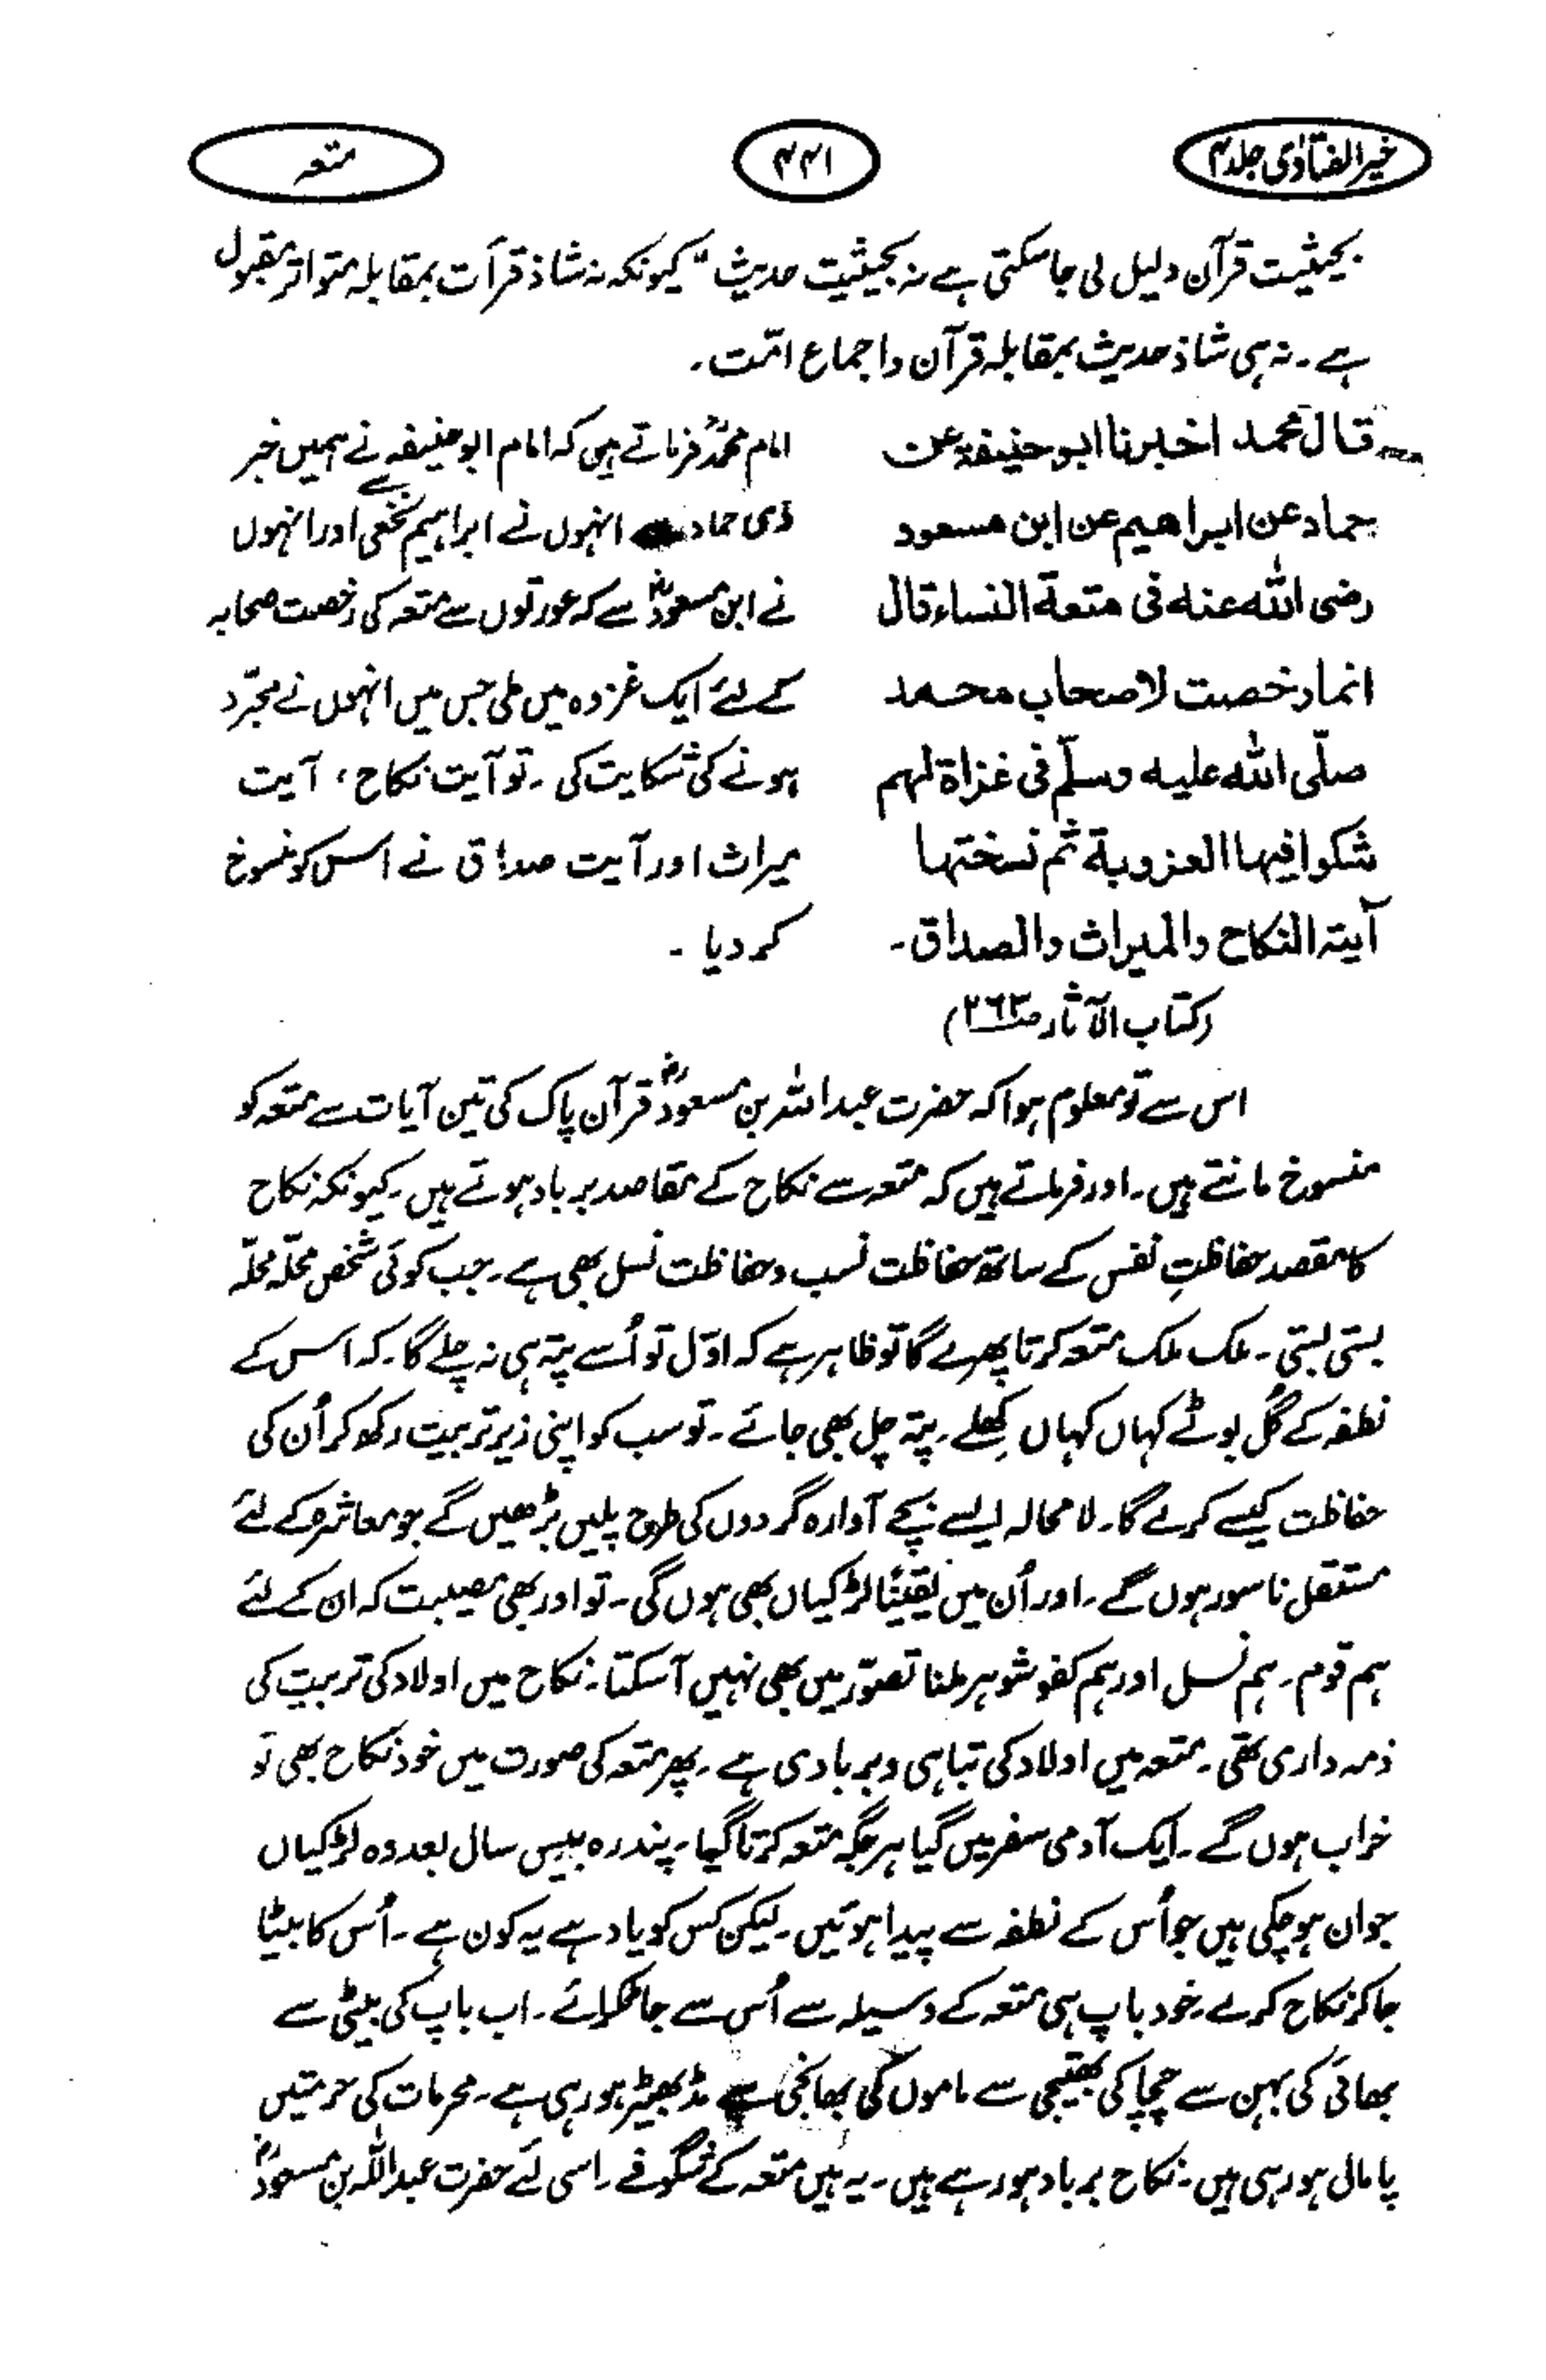 خیر الفتاوٰی جلد ۴
۴۴۱
متعہ
بحیثیت قرآن دلیل لی جا سکتی ہے نہ بحیثیت حدیث" کیونکہ نہ شاذ قرأت بمقابلہ متواتر مقبول
ہے۔ نہ ہی شاذ حدیث بمقابلہ قرآن و اجماع امّت۔
قال محمد اخبرنا ابو حنیفۃ عن
حماد عن ابراھیم عن ابن مسعود
رضی اللہ عنہ فی متعۃ النساء قال
انما رخصت لاصحاب محمد
صلّی اللہ علیہ وسلّم فی غزاۃ لہم
شکوا فیہا العزوبۃ ثم نسختہا
آیۃ النکاح والمیراث والصداق۔
(کتاب الآثار ص۲۶۳)
امام محمدؒ فرماتے ہیں کہ امام ابو حنیفہؒ نے ہمیں خبر
دی حماد سے انہوں نے ابراہیم نخعی اور انہوں
نے ابن مسعودؓ سے کہ عورتوں سے متعہ کی رخصت صحابہ
کے لئے ایک غزوہ میں ملی جس میں انہوں نے مجرّد
ہونے کی شکایت کی۔ تو آیت نکاح، آیت
میراث اور آیت صداق نے اس کو منسوخ
کر دیا۔
اس سے تو معلوم ہوا کہ حضرت عبداللہ بن مسعودؓ قرآن پاک کی تین آیات سے متعہ کو
منسوخ مانتے ہیں۔ اور فرماتے ہیں کہ متعہ سے نکاح کے مقاصد برباد ہوتے ہیں۔ کیونکہ نکاح
کا مقصد حفاظتِ نفس کے ساتھ حفاظت نسب و حفاظت نسل بھی ہے۔ جب کوئی شخص محلّہ محلّہ
بستی بستی۔ ملک ملک متعہ کرتا پھرے گا تو ظاہر ہے کہ اوّل تو اُسے پتہ ہی نہ چلے گا۔ کہ اس کے
نطفہ کے گُل بوٹے کہاں کہاں کِھلے۔ پتہ چل بھی جائے۔ تو سب کو اپنی زیر تربیت رکھ کر اُن کی
حفاظت کیسے کرے گا۔ لا محالہ ایسے بچے آوارہ گردوں کی طرح پلیں بڑھیں گے جو معاشرہ کے لئے
مستقل ناسور ہوں گے۔ اور اُن میں یقینًا لڑکیاں بھی ہوں گی۔ تو اور بھی مصیبت کہ ان کے لئے
ہم قوم۔ ہم نسل اور ہم کفو شوہر ملنا تصوّر میں بھی نہیں آ سکتا۔ نکاح میں اولاد کی تربیت کی
ذمہ داری تھی۔ متعہ میں اولاد کی تباہی و بربادی ہے۔ پھر متعہ کی صورت میں خود نکاح بھی تو
خراب ہوں گے۔ ایک آدمی سفر میں گیا ہر جگہ متعہ کرتا گیا۔ پندرہ بیس سال بعد وہ لڑکیاں
جوان ہو چکی ہیں جو اُس کے نطفہ سے پیدا ہوئیں۔ لیکن کس کو یاد ہے یہ کون ہے۔ اُس کا بیٹا
جا کر نکاح کرے۔ خود باپ ہی متعہ کے وسیلہ سے اُس سے جا ٹکرائے۔ اب باپ کی بیٹی سے
بھائی کی بہن سے چچا کی بھتیجی سے ماموں کی بھانجی سے مڈبھیڑ ہو رہی ہے۔ محرمات کی حرمتیں
پامال ہو رہی ہیں۔ نکاح برباد ہو رہے ہیں۔ یہ ہیں متعہ کے شگوفے۔ اسی لئے حضرت عبداللہ بن مسعودؓ